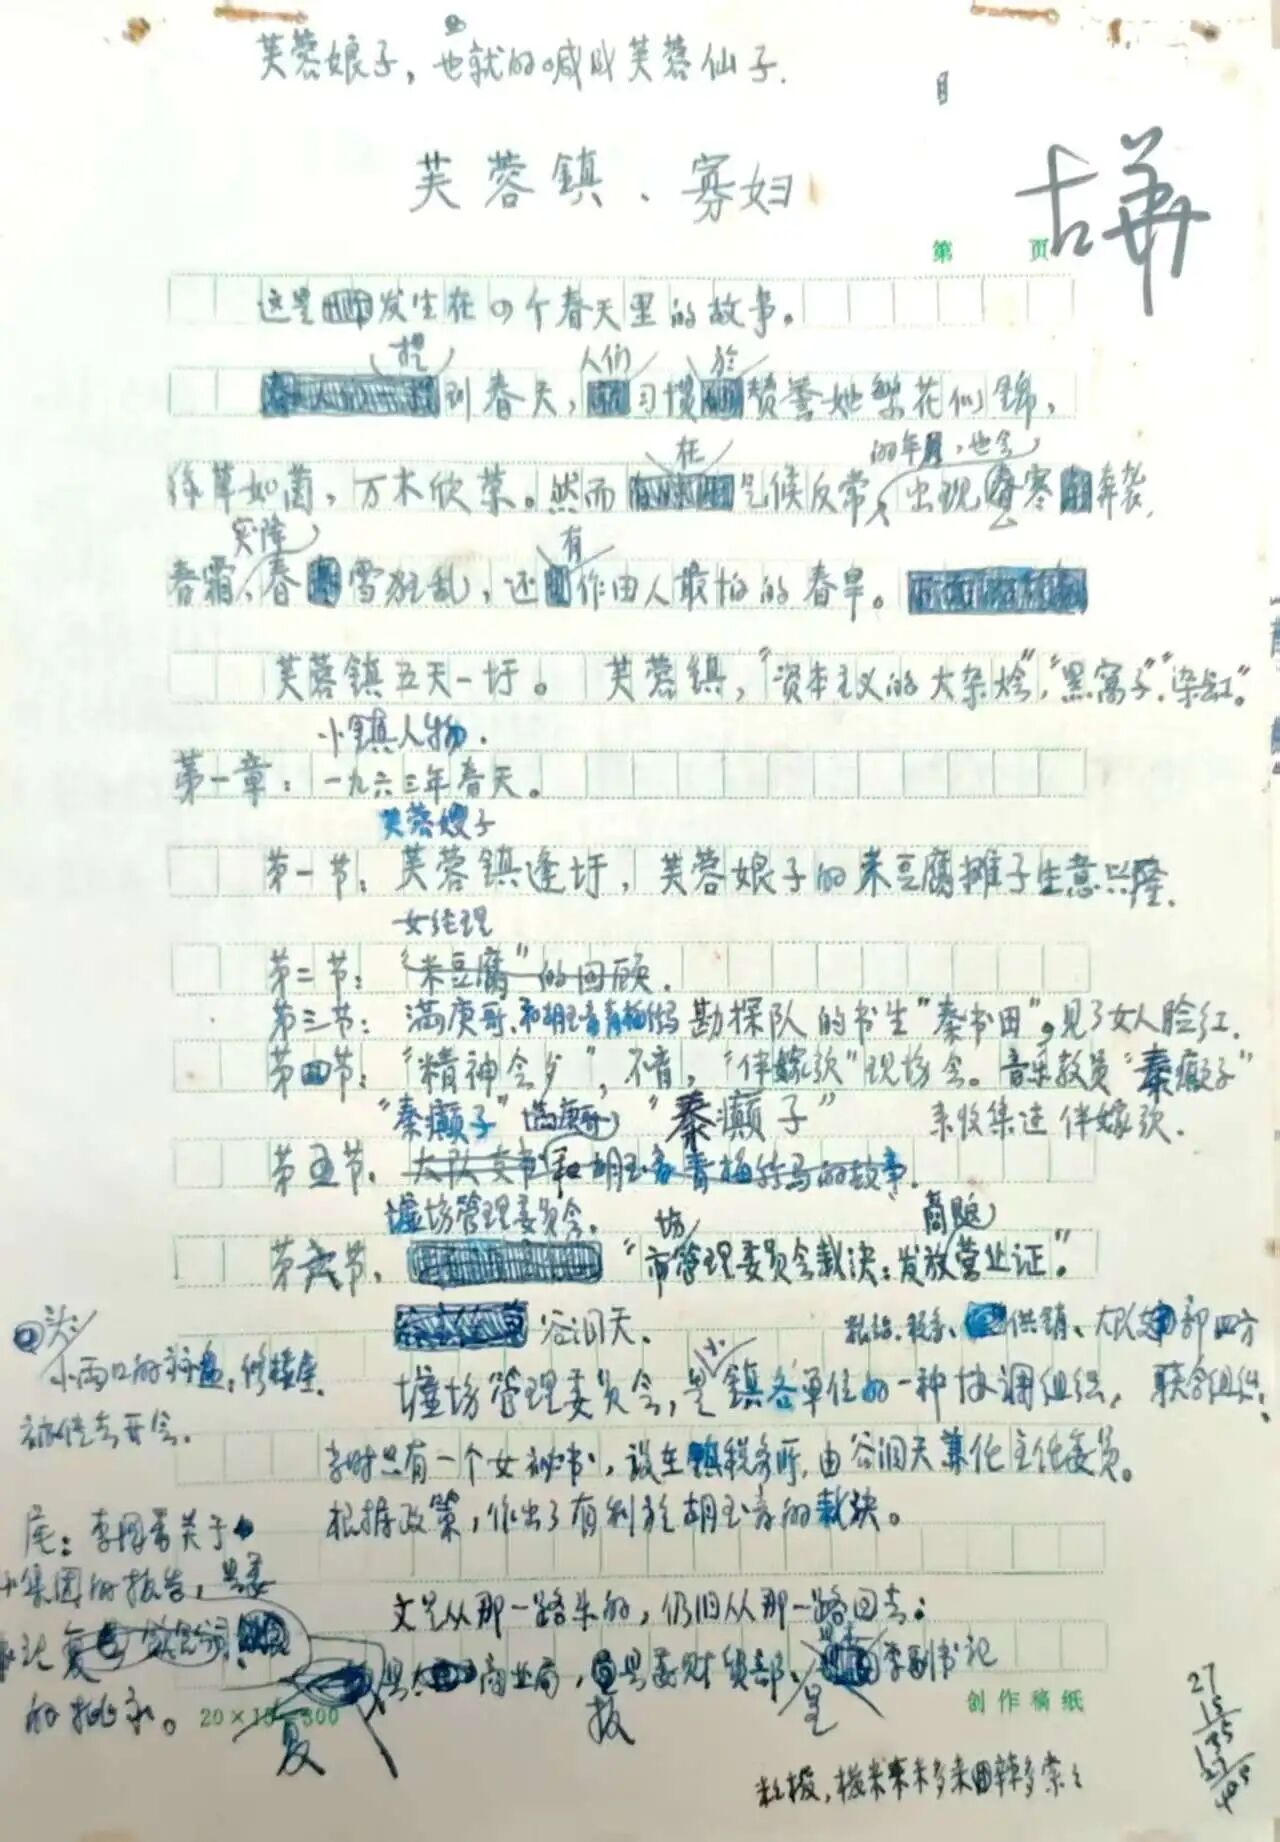 芙蓉娘子，也就的喊成芙蓉仙子.
芙蓉鎮、寡妇
古华
第 页
这里发生在四个春天里的故事。
提
人们
於
到春天，习惯赞誉她繁花似锦，
在
的年月，也会
绿草如茵，万木欣荣。然而气候反常，出现春寒奔袭，
突降
有
春霜、春雪狂乱，还作由人最怕的春旱。
芙蓉镇五天一圩。 芙蓉镇，“资本主义的大杂烩”，“黑窝子”“染缸”。
小镇人物.
第一章：一九六三年春天。
芙蓉嫂子
第一节：芙蓉镇逢圩，芙蓉娘子的米豆腐摊子生意兴隆.
女经理
第二节：“米豆腐”的回顾.
第三节：满庚哥、和胡玉音青梅竹马 勘探队的书生“秦书田”，见了女人脸红.
第四节：“精神会歺”，不育，“伴嫁歌”现场会。音乐教员“秦癫子”
“秦癫子” 满庚哥 “秦癫子” 来收集过伴嫁歌.
第五节. 大队支书和胡玉音青梅竹马的故事.
墟场管理委员会.
场
商贩
第六节. “市管理委员会裁决：发放营业证”
谷洞天.
供销、大队支部四方
墟场管理委员会，是小镇各单位的一种协调组织，联合组织.
头：
小两口的
修楼屋.
去开会.
只有一个女秘书，设在镇税务所，由谷洞天兼任主任委员。
根据政策，作出了有利於胡玉音的裁决。
尾：李国香关于
小集团的报告，县委
文是从那一路来的，仍旧从那一路回去：
商业局，县委财贸部、李副书记
报
呈
复
20×15=300
创作稿纸
27
15
135
27
405